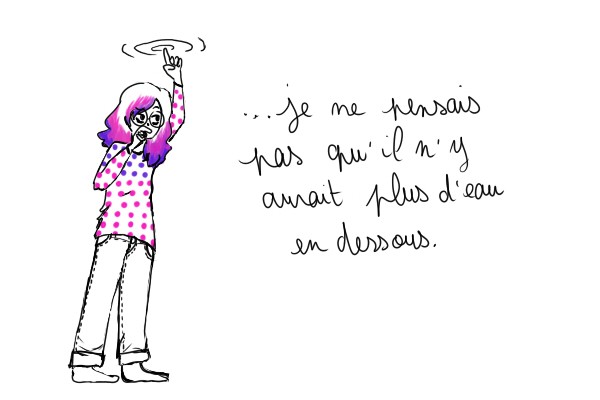 ...je ne pensais
pas qu'il n'y
aurait plus d'eau
en dessous.